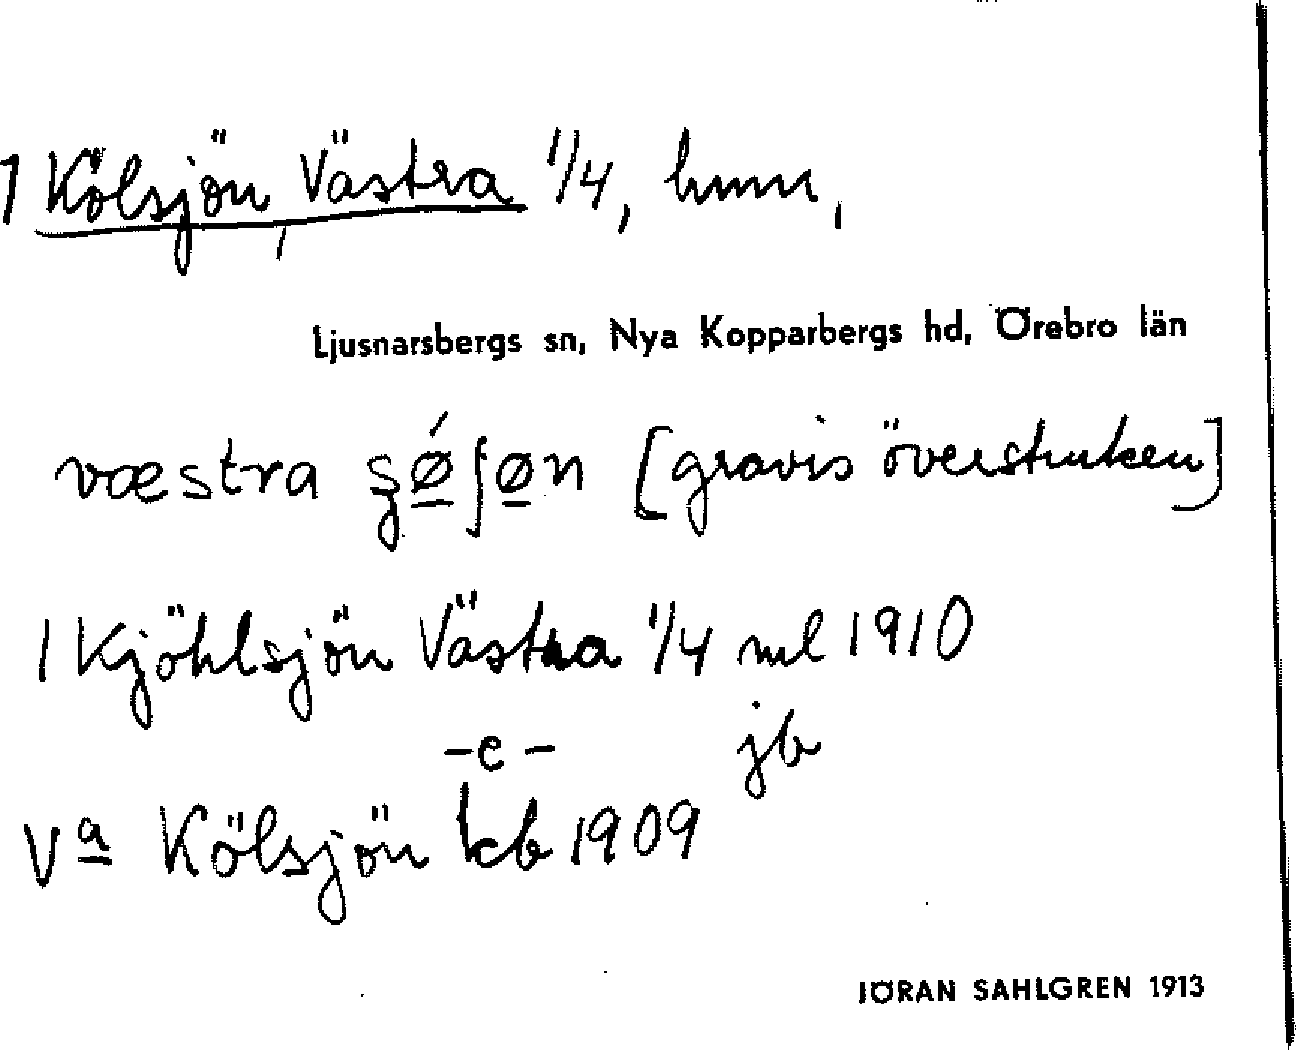 1 Kölsjön, Västra 1/4, hmn,
Ljusnarsbergs sn, Nya Kopparbergs hd, Örebro län
væstra ʂǿ̲ʃø̲n [gravis överstruken]
1 Kjöhlsjön Västra 1/4 ml 1910
– e – jb
Va Kölsjön kb 1909
JÖRAN SAHLGREN 1913